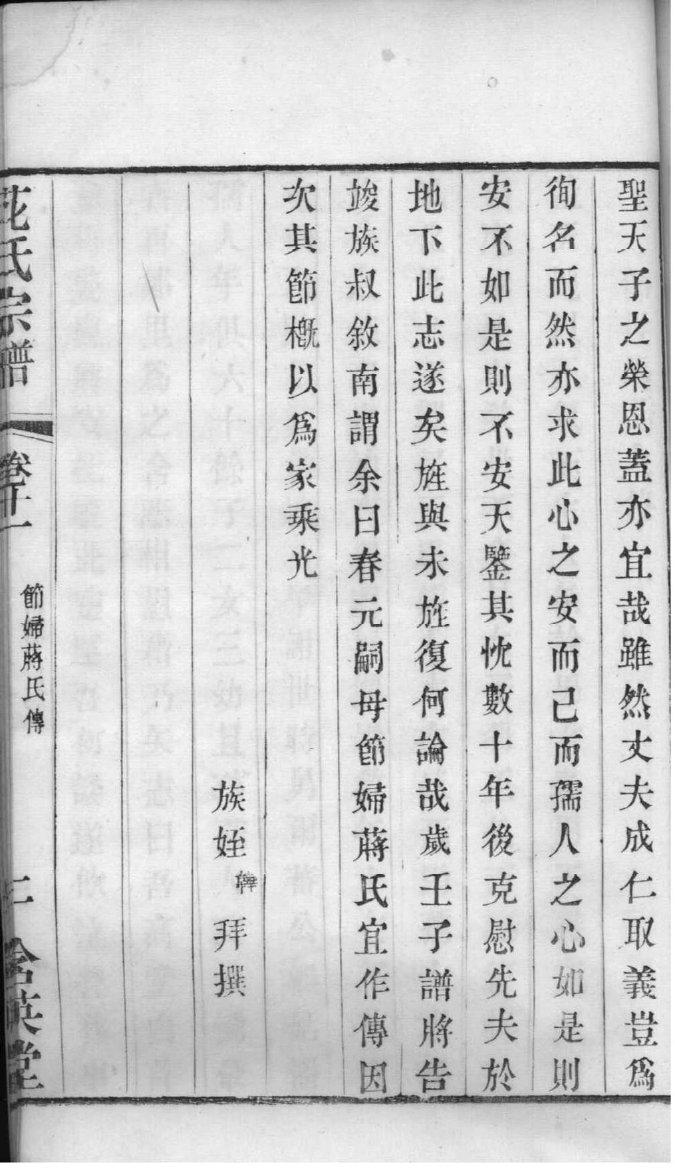 聖天子之榮恩蓋亦宜哉雖然丈夫成仁取義豈爲
徇名而然亦求此心之安而己而孺人之心如是則
安不如是則不安天鑒其忱數十年後克慰先夫於
地下此志遂矣旌與未旌復何論哉歲壬子譜將告
竣族叔敘南謂余曰春元嗣母節婦蔣氏宜作傳因
次其節概以爲家乘光
族姪 拜撰
花氏宗譜
卷十一
節婦蔣氏傳
二
含英堂